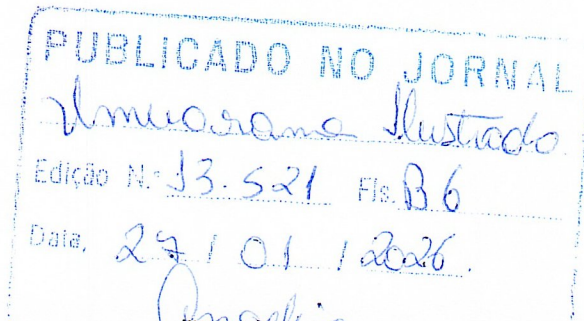 PUBLICADO NO JORNAL
Umuarama Ilustrado
Edição N.º 13.521 Fls. B6
Data, 27 / 01 / 2026.